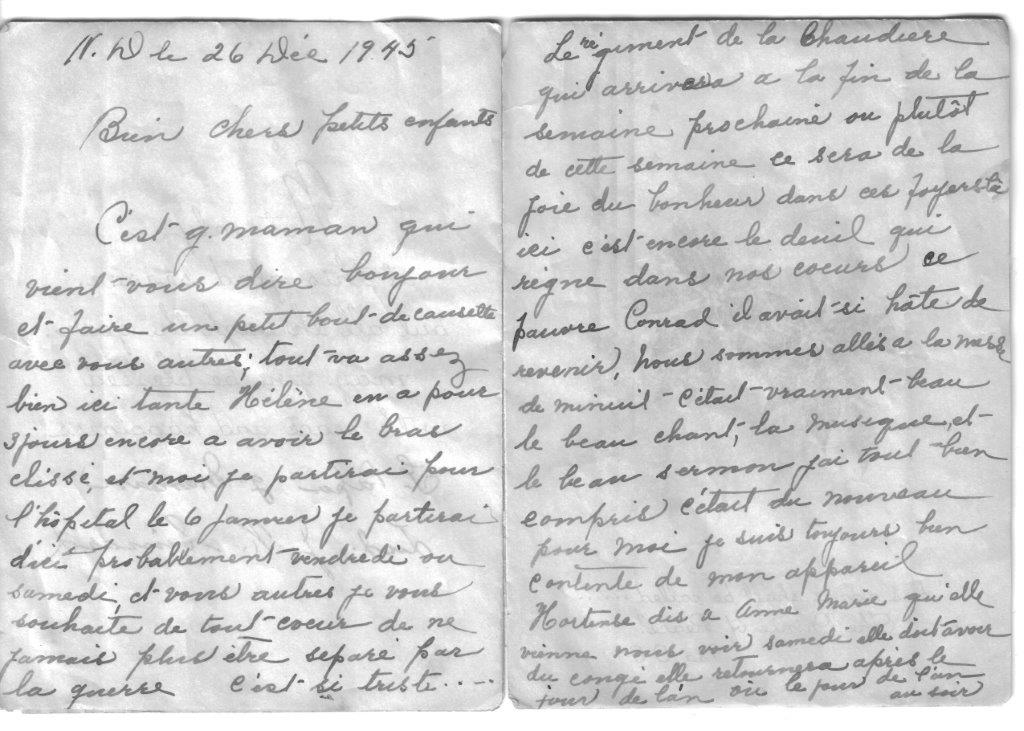 N. D le 26 Déc 1945
Bien chers petits enfants
C'est g. maman qui
vient vous dire bonjour
et faire un petit bout de causette
avec vous autres; tout va assez
bien ici tante Hélène en a pour
3 jours encore a avoir le bras
clissé, et moi je partirai pour
l'hôpital le 6 Janvier je partirai
d'ici probablement vendredi ou
samedi, et vous autres je vous
souhaite de tout coeur de ne
jamais plus être separé par
la guerre c'est si triste.....
Le régiment de la Chaudiere
qui arrivera a la fin de la
semaine prochaine ou plutôt
de cette semaine ce sera de la
joie du bonheur dans ces foyers là
ici c'est encore le deuil qui
règne dans nos coeurs ce
pauvre Conrad il avait si hâte de
revenir, nous sommes allés a la messe
de minuit c'était vraiment beau
le beau chant, la musique, et
le beau sermon j'ai tout bien
compris c'était du nouveau
pour moi je suis toujours bien
contente de mon appareil
Hortense dis a Anne Marie qu'elle
vienne nous voir samedi elle doit avoir
du congé elle retournera après le
jour de l'an où le jour de l'an
au soir